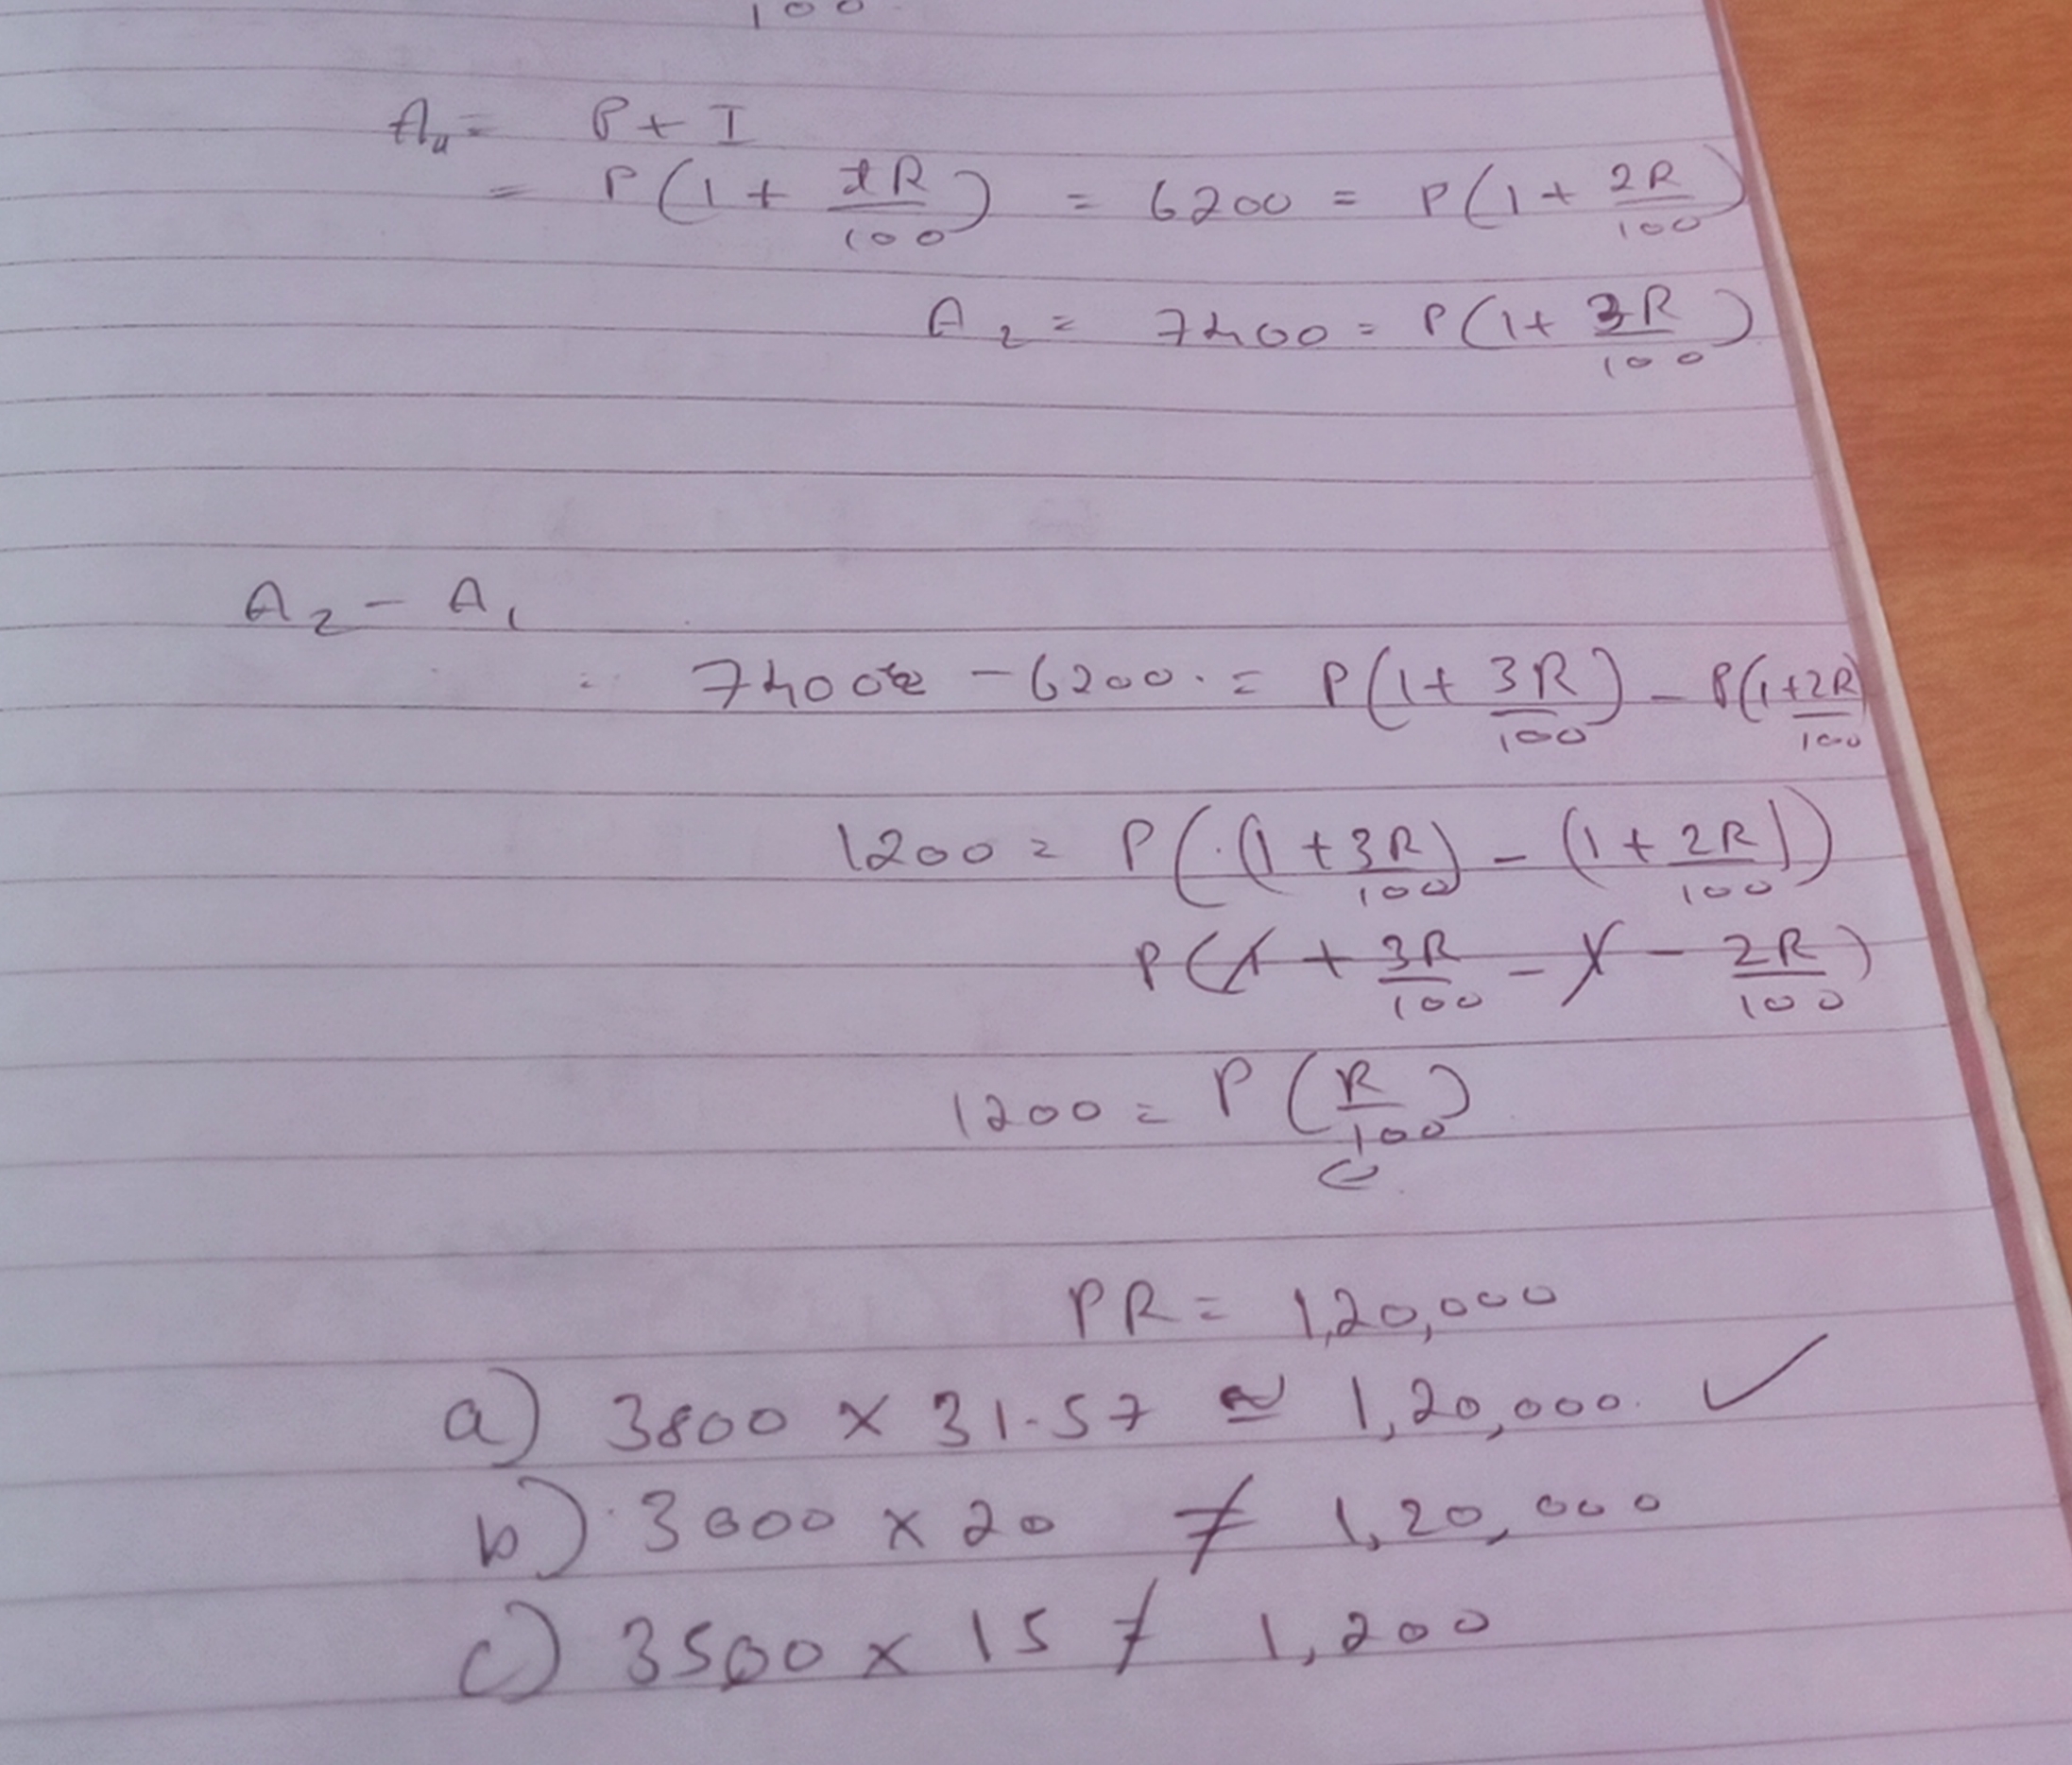 100
Au = P + I
= P(1 + tR/100) = 6200 = P(1 + 2R/100)
A2 = 7400 = P(1 + 3R/100)
A2 - A1
= 7400 - 6200. = P(1 + 3R/100) - P(1+2R/100
1200 = P((1 + 3R/100) - (1 + 2R/100))
P(1 + 3R/100 - 1 - 2R/100)
1200 = P(R/100)
PR = 1,20,000
a) 3800 × 31.57 ≃ 1,20,000. ✓
b) 3000 × 20 ≠ 1,20,000
c) 3500 × 15 ≠ 1,200